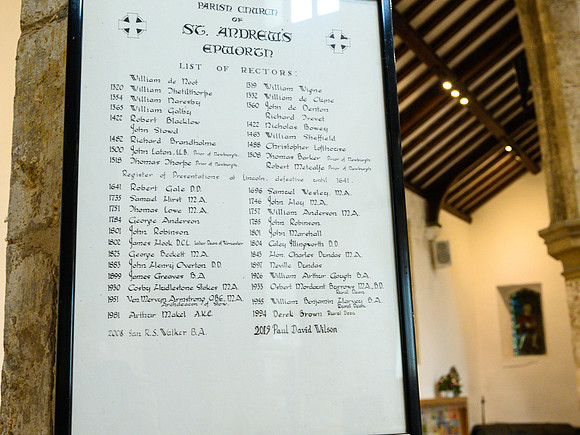 PARISH CHURCH
OF
ST. ANDREW'S
EPWORTH
LIST OF RECTORS:
William de Noot 1319 William Wigne
1320 William Thetilthorpe 1332 William de Ozne
1354 William Naresby 1360 John de Denton
1365 William Galby Richard Trevet
1422 Robert Blacklow 1422 Nicholas Bowey
John Stowd 1463 William Sheffield
1482 Richard Brandholme 1486 Christopher Lofthouse
1500 John Laton, LL.B. Prior of Newburgh. 1508 Thomas Barker Prior of Newburgh.
1518 Thomas Thorpe Prior of Newburgh. Robert Metcalfe Prior of Newburgh.
Register of Presentations at Lincoln, defective until 1641.
1641 Robert Gale D.D. 1696 Samuel Wesley, M.A.
1735 Samuel Hirst M.A. 1746 John Hay M.A.
1751 Thomas Lowe M.A. 1757 William Anderson M.A.
1784 George Anderson 1785 John Robinson
1801 John Robinson 1801 John Marshall
1802 James Hook D.C.L. 1804 Coley Illingworth D.D.
1823 George Beckett M.A. 1843 Hon. Charles Dundas M.A.
1883 John Henry Overton D.D. 1897 Neville Dundas
1899 James Greaves B.A. 1926 William Arthur Gough B.A.
1930 Cosby Hudlestone Stoker M.A. 1933 Osbert Mordaunt Burrows M.A., B.D. Rural Dean.
1951 Van Mervyn Armstrong O.B.E., M.A. Archdeacon of Stow. 1955 William Benjamin Harvey B.A. Rural Dean.
1981 Arthur Makel A.K.C. 1994 Derek Brown Rural Dean
2008 Ian R.S. Walker B.A. 2019 Paul David Wilson